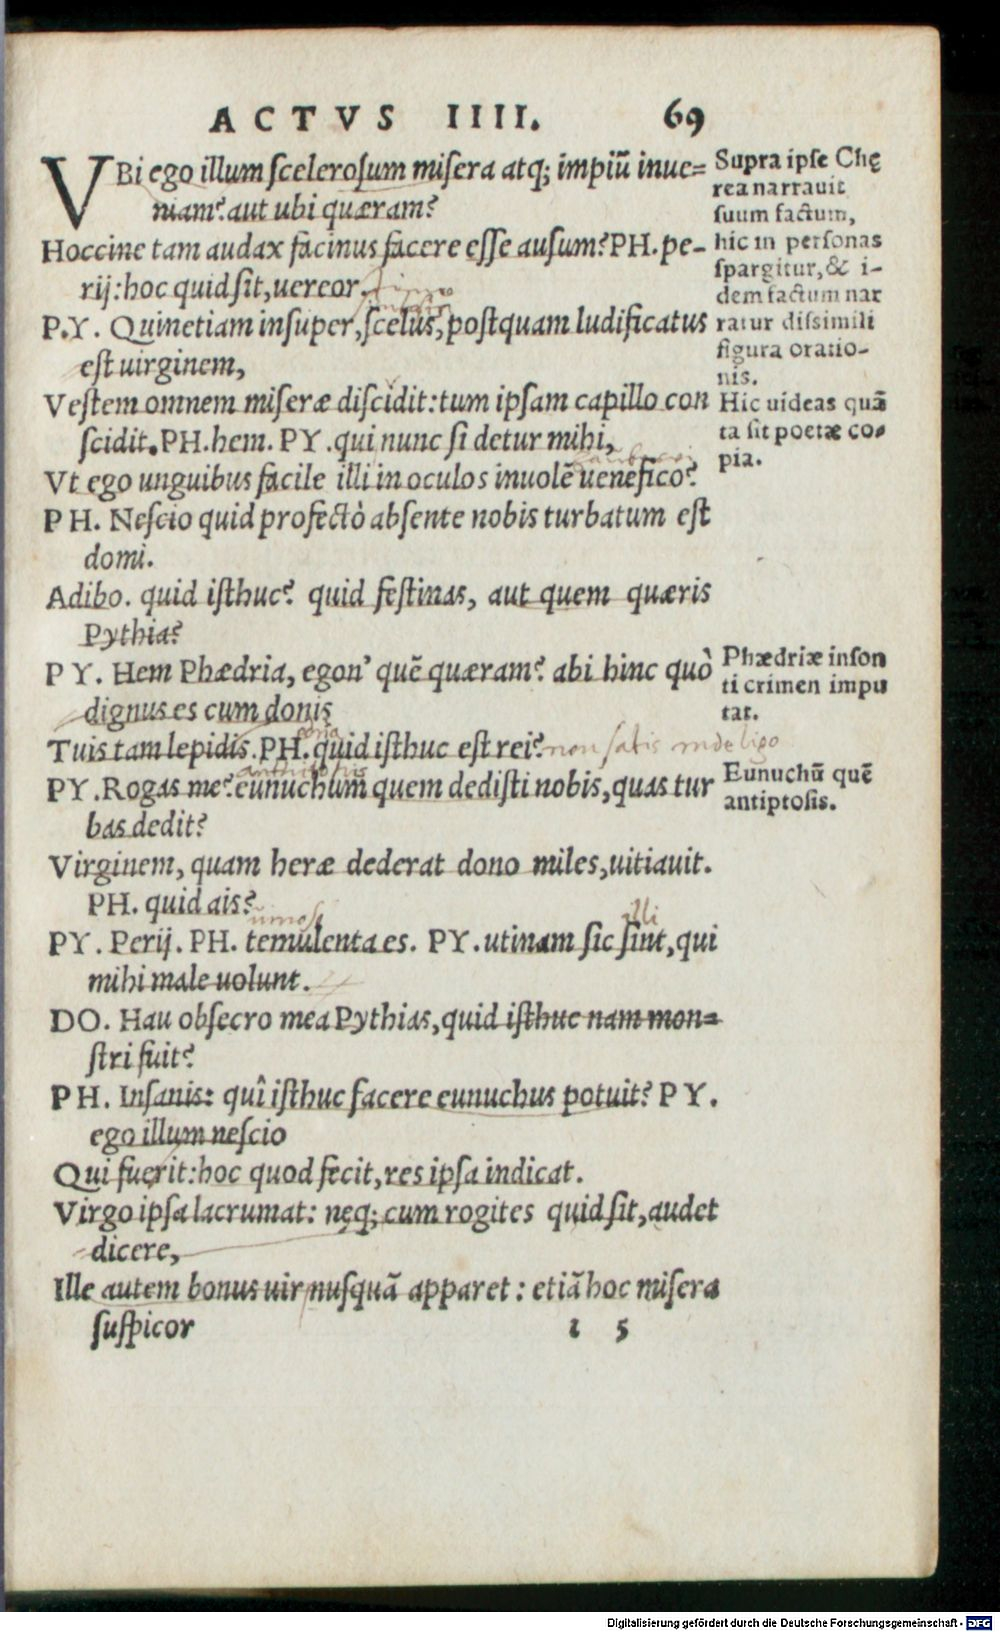 ACTVS IIII. 69
VBi ego illum scelerosum misera atq; impiũ inue=
niam? aut ubi quæram?
Hoccine tam audax facinus facere esse ausum? PH. pe-
rij: hoc quid sit, uereor.
P.Y. Quinetiam insuper, scelus, postquam ludificatus
est uirginem,
Vestem omnem miseræ discidit: tum ipsam capillo con
scidit. PH. hem. PY. qui nunc si detur mihi,
Vt ego unguibus facile illi in oculos inuolẽ uenefico?
PH. Nescio quid profectò absente nobis turbatum est
domi.
Adibo. quid isthuc? quid festinas, aut quem quæris
Pythia?
PY. Hem Phædria, egon' quẽ quæram? abi hinc quò
dignus es cum donis
Tuis tam lepidis. PH. quid isthuc est rei? non satis intelligo
PY. Rogas me? eunuchum quem dedisti nobis, quas tur
bas dedit?
Virginem, quam heræ dederat dono miles, uitiauit.
PH. quid ais?
illi
PY. Perij. PH. temulenta es. PY. utinam sic sint, qui
mihi male uolunt.
DO. Hau obsecro mea Pythias, quid isthuc nam mon=
stri fuit?
PH. Insanis: quî isthuc facere eunuchus potuit? PY.
ego illum nescio
Qui fuerit: hoc quod fecit, res ipsa indicat.
Virgo ipsa lacrumat: neq; cum rogites quid sit, audet
dicere,
Ille autem bonus uir nusquã apparet: etiã hoc misera
suspicor
i 5
Supra ipse Chę
rea narrauit
suum factum,
hic in personas
spargitur, & i-
dem factum nar
ratur dissimili
figura oratio-
nis.
Hic uideas quã
ta sit poetæ co-
pia.
Phædriæ inson
ti crimen impu
tat.
Eunuchũ quẽ
antiptosis.
Digitalisierung gefördert durch die Deutsche Forschungsgemeinschaft - DFG